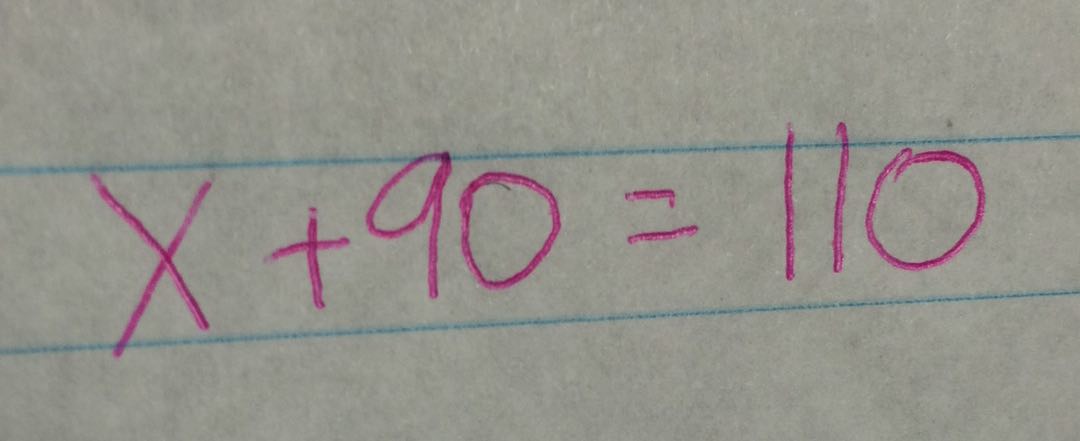 X + 90 = 110